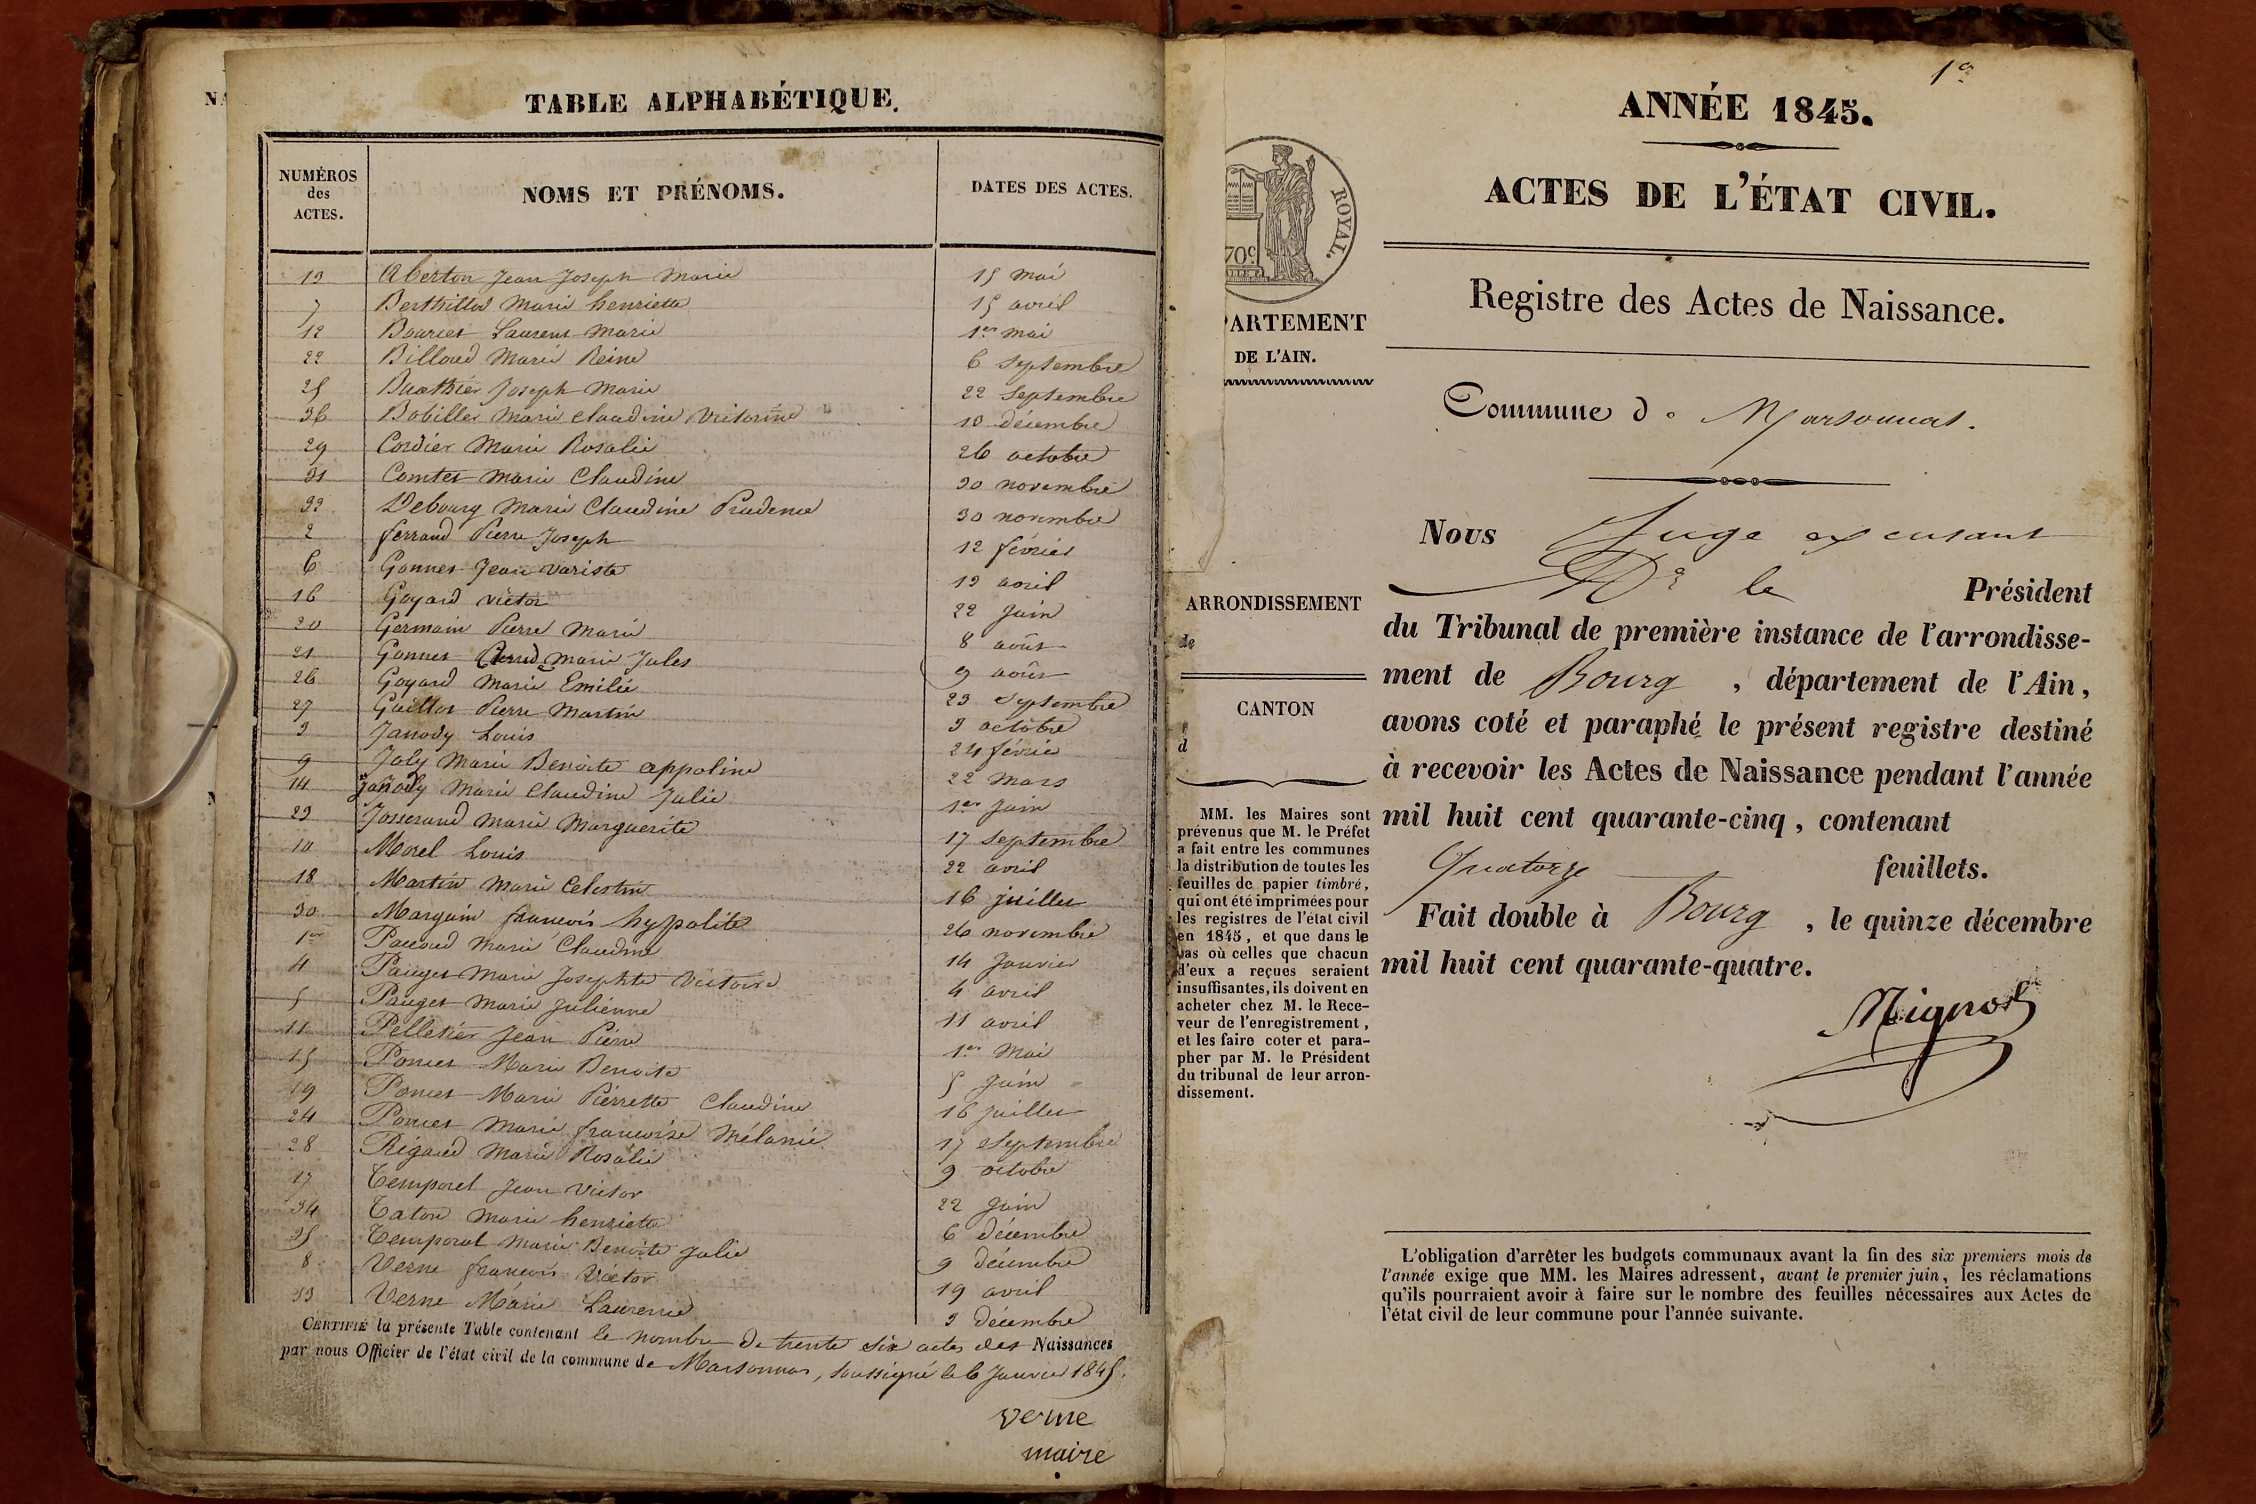 TABLE ALPHABÉTIQUE.
NUMÉROS des ACTES.
NOMS ET PRÉNOMS.
DATES DES ACTES.
13 Aberton Jean Joseph Marie 15 mai
7 Berthillod Marie henriette 15 avril
12 Bourcet Laurent Marie 1er mai
22 Billoud Marie Reine 6 septembre
25 Buathier Joseph Marie 22 septembre
36 Bobillet Marie claudine victorine 10 décembre
29 Cordier Marie Rosalie 26 octobre
31 Comtet Marie Claudine 30 novembre
32 Debourg Marie Claudine Prudence 30 novembre
2 ferrand Pierre Joseph 12 février
6 Gonnet Jean variste 13 avril
16 Goyard victor 22 juin
20 Germain Pierre Marie 8 août
21 Gonnet Marie Jules 9 août
26 Goyard Marie Emilie 23 septembre
27 Guillot Pierre Martin 3 octobre
3 Janody Louis 24 février
9 Joly Marie Benoite appoline 22 mars
14 Janody Marie Claudine Julie 1er juin
23 Josserand Marie Marguerite 17 septembre
10 Morel Louis 22 avril
18 Martin Marie Celestin 16 juillet
30 Marguin francois hypolite 26 novembre
1er Pacoud Marie Claudine 14 Janvier
4 Pauget Marie Josephte Victoire 4 avril
5 Pauget Marie Julienne 11 avril
11 Pelletier Jean Pierre 1er Mai
15 Poncet Marie Benoite 5 juin
19 Poncet Marie Pierrette Claudine 16 juillet
24 Poncet Marie francoise Mélanie 17 septembre
28 Rigaud Marie Rosalie 9 octobre
17 Temporel Jean Victor 22 juin
34 Caton Marie henriette 6 décembre
35 Temporal Marie Benoite Julie 9 décembre
8 Verne francois Victor 19 avril
33 Verne Marie Laurence 3 décembre
CERTIFIÉ la présente Table contenant le nombre de trente six actes des Naissances
par nous Officier de l'état civil de la commune de Marsonnas, soussigné le 6 Janvier 1845.
verne
maire
ANNÉE 1845.
ACTES DE L'ÉTAT CIVIL.
Registre des Actes de Naissance.
ROYAL.
70c
PARTEMENT
DE L'AIN.
Commune de Marsonnas.
ARRONDISSEMENT
de
CANTON
d
MM. les Maires sont
prévenus que M. le Préfet
a fait entre les communes
la distribution de toutes les
feuilles de papier timbré,
qui ont été imprimées pour
les registres de l'état civil
en 1845, et que dans le
cas où celles que chacun
d'eux a reçues seraient
insuffisantes, ils doivent en
acheter chez M. le Rece-
veur de l'enregistrement,
et les faire coter et para-
pher par M. le Président
du tribunal de leur arron-
dissement.
Nous Juge excusant
le Président
du Tribunal de première instance de l'arrondisse-
ment de Bourg, département de l'Ain,
avons coté et paraphé le présent registre destiné
à recevoir les Actes de Naissance pendant l'année
mil huit cent quarante-cinq, contenant
Quatorze feuillets.
Fait double à Bourg, le quinze décembre
mil huit cent quarante-quatre.
L'obligation d'arrêter les budgets communaux avant la fin des six premiers mois de
l'année exige que MM. les Maires adressent, avant le premier juin, les réclamations
qu'ils pourraient avoir à faire sur le nombre des feuilles nécessaires aux Actes de
l'état civil de leur commune pour l'année suivante.